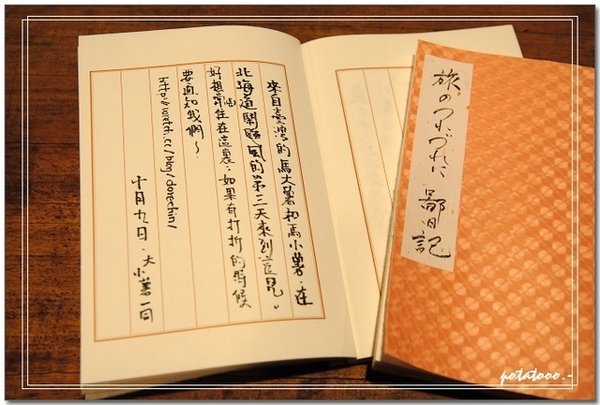 來自臺灣的馬大薯和馬小薯.在
北海道鬧風的第三天來到這兒。
好想常住在這裏..如果有打折的時候
要通知我們~
http://wretch.cc/blog/dorechin/
十月九日.大小薯一同
旅のつれづれに 日記
potatooo.-